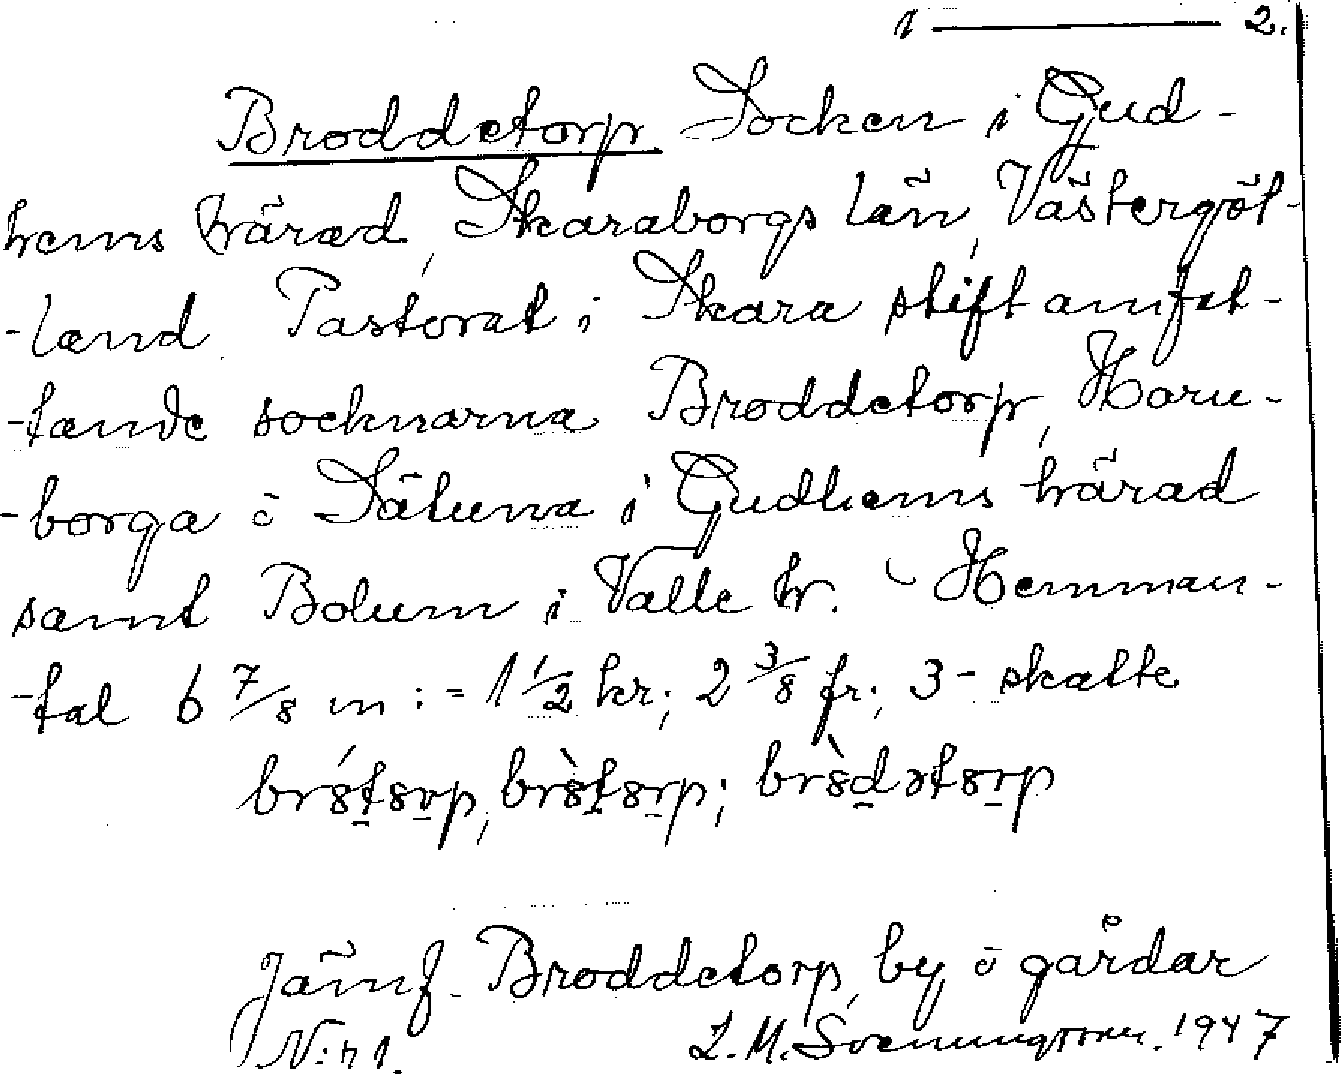 1 — 2.
Broddetorp Socken i Gud-
hems härad, Skaraborgs län, Västergöt-
-land. Pastorat i Skara stift omfat-
-tande socknarna Broddetorp, Horn-
-borga o Sätuna i Gudhems härad
samt Bolum i Valle hr. Hemman-
-tal 6 7/8 m := 1 1/2 kr; 2 3/8 fr; 3 - skatte
Jämf. Broddetorp, by o gårdar
N:r 1. L. M. Svenungsson. 1947